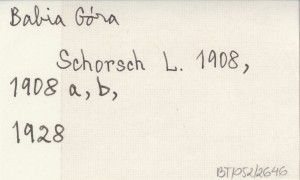 Babia Góra
Schorsch L. 1908,
1908 a, b,
1928
BT/052/2646